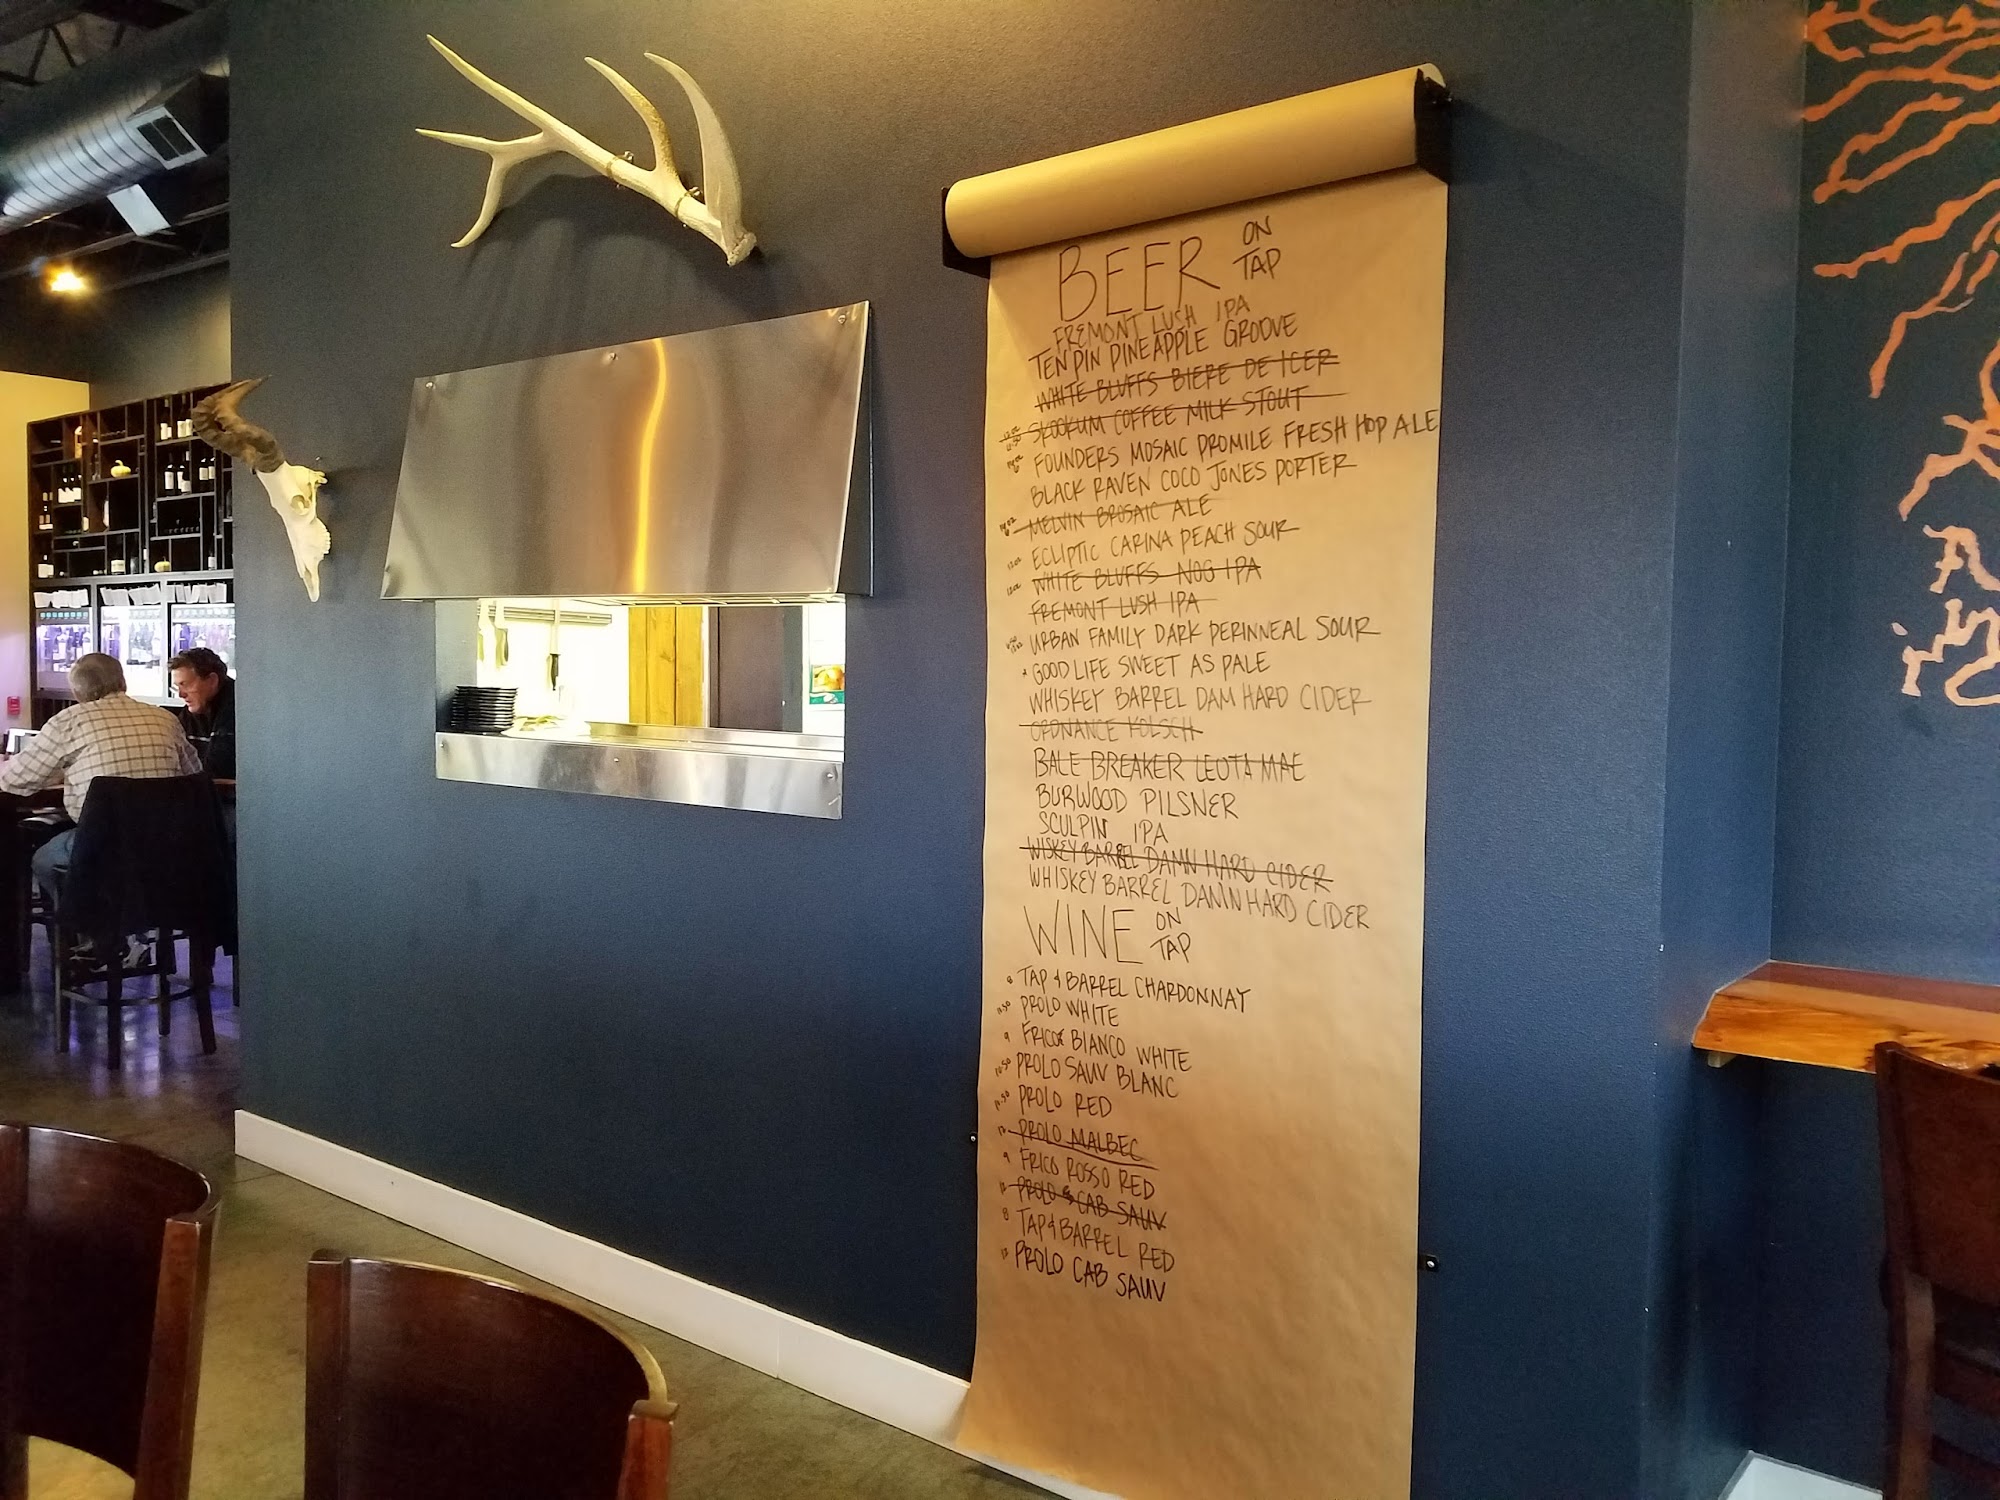 BEER ON TAP
FREMONT LUSH IPA
TEN PIN PINEAPPLE GROOVE
WHITE BLUFFS BIERE DE ICER
SKOOKUM COFFEE MILK STOUT
FOUNDERS MOSAIC PROMILE FRESH HOP ALE
BLACK RAVEN COCO JONES PORTER
MELVIN BROSAIC ALE
ECLIPTIC CARINA PEACH SOUR
WHITE BLUFFS NOG IPA
FREMONT LUSH IPA
URBAN FAMILY DARK PERINNEAL SOUR
GOOD LIFE SWEET AS PALE
WHISKEY BARREL DAM HARD CIDER
ORDNANCE KOLSCH
BALE BREAKER LEOTA MAE
BURWOOD PILSNER
SCULPIN IPA
WISKEY BARREL DAMN HARD CIDER
WHISKEY BARREL DAMN HARD CIDER
WINE ON TAP
8 TAP & BARREL CHARDONNAY
11.50 PROLO WHITE
9 FRICO BIANCO WHITE
10.50 PROLO SAUV BLANC
11.50 PROLO RED
12 PROLO MALBEC
9 FRICO ROSSO RED
12 PROLO CAB SAUV
8 TAP & BARREL RED
12 PROLO CAB SAUV